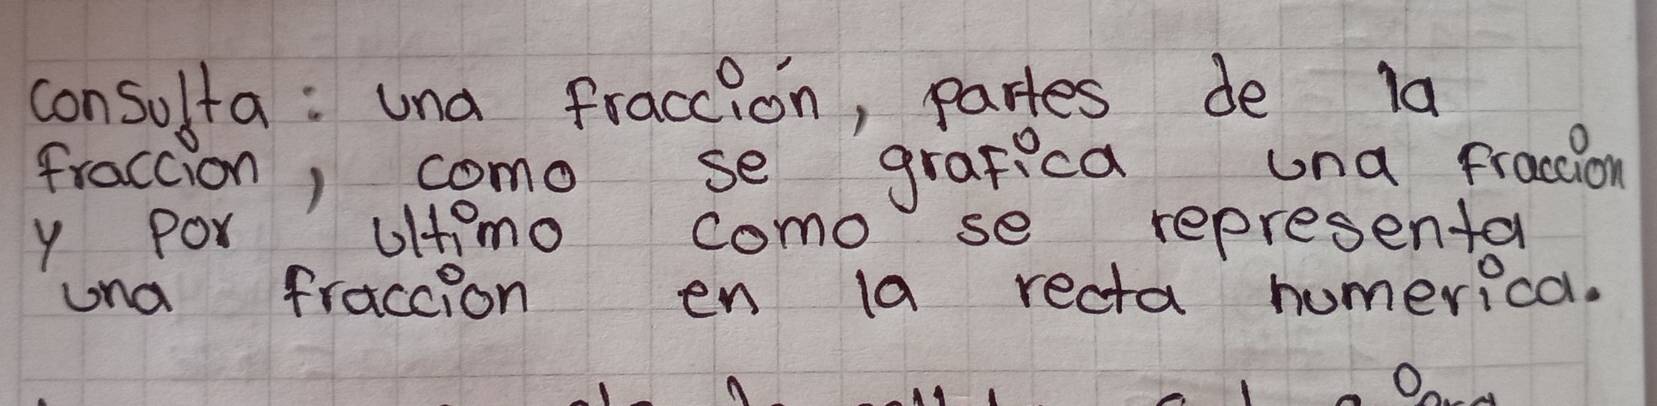 consulta: una fracción, partes de la
fraccion, como se grafica una fraccion
y por ultimo como se representa
una fraccion en la recta numerica.